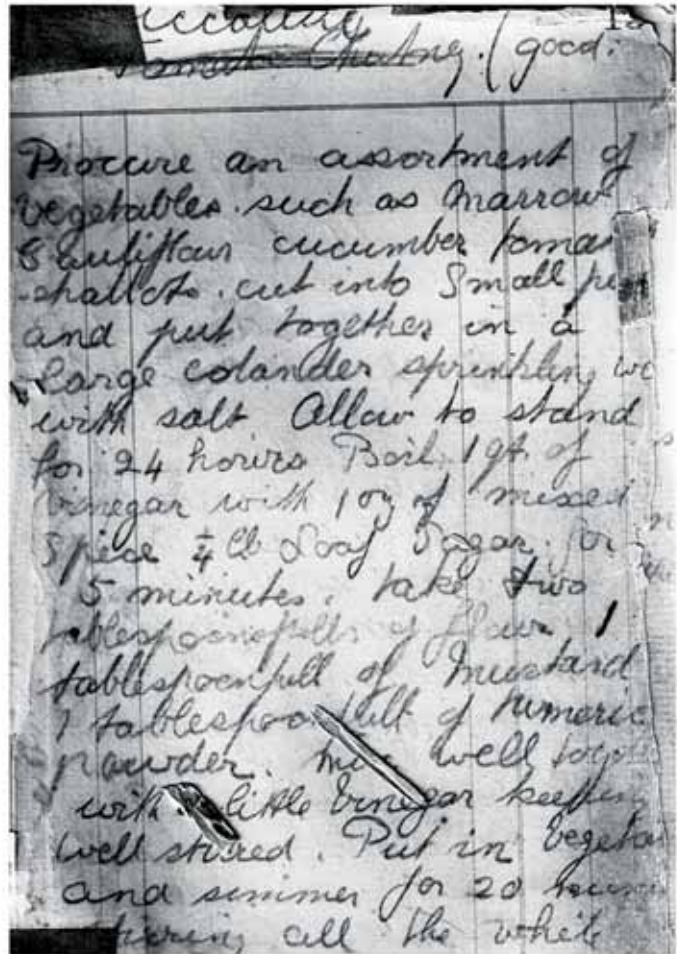 Piccalilly
Tomato Chutney. (good.
Procure an assortment of
vegetables. such as Marrow
Cauliflour cucumber toma
shallots. cut into Small pie
and put together in a
large colander sprinkling we
with salt Allow to stand
for 24 hours Boil 1 qt. of
Vinegar with 1 oz of mixed
Spice ¼ lb Loaf Sugar. for
5 minutes. take two
tablespoonsfulls of flour 1
tablespoonfull of Mustard
1 tablespoonfull of tumeric
powder. mix well toge
with little Vinegar keeping
well stired. Put in Vegeta
and simmer for 20 minu
stiring all the while